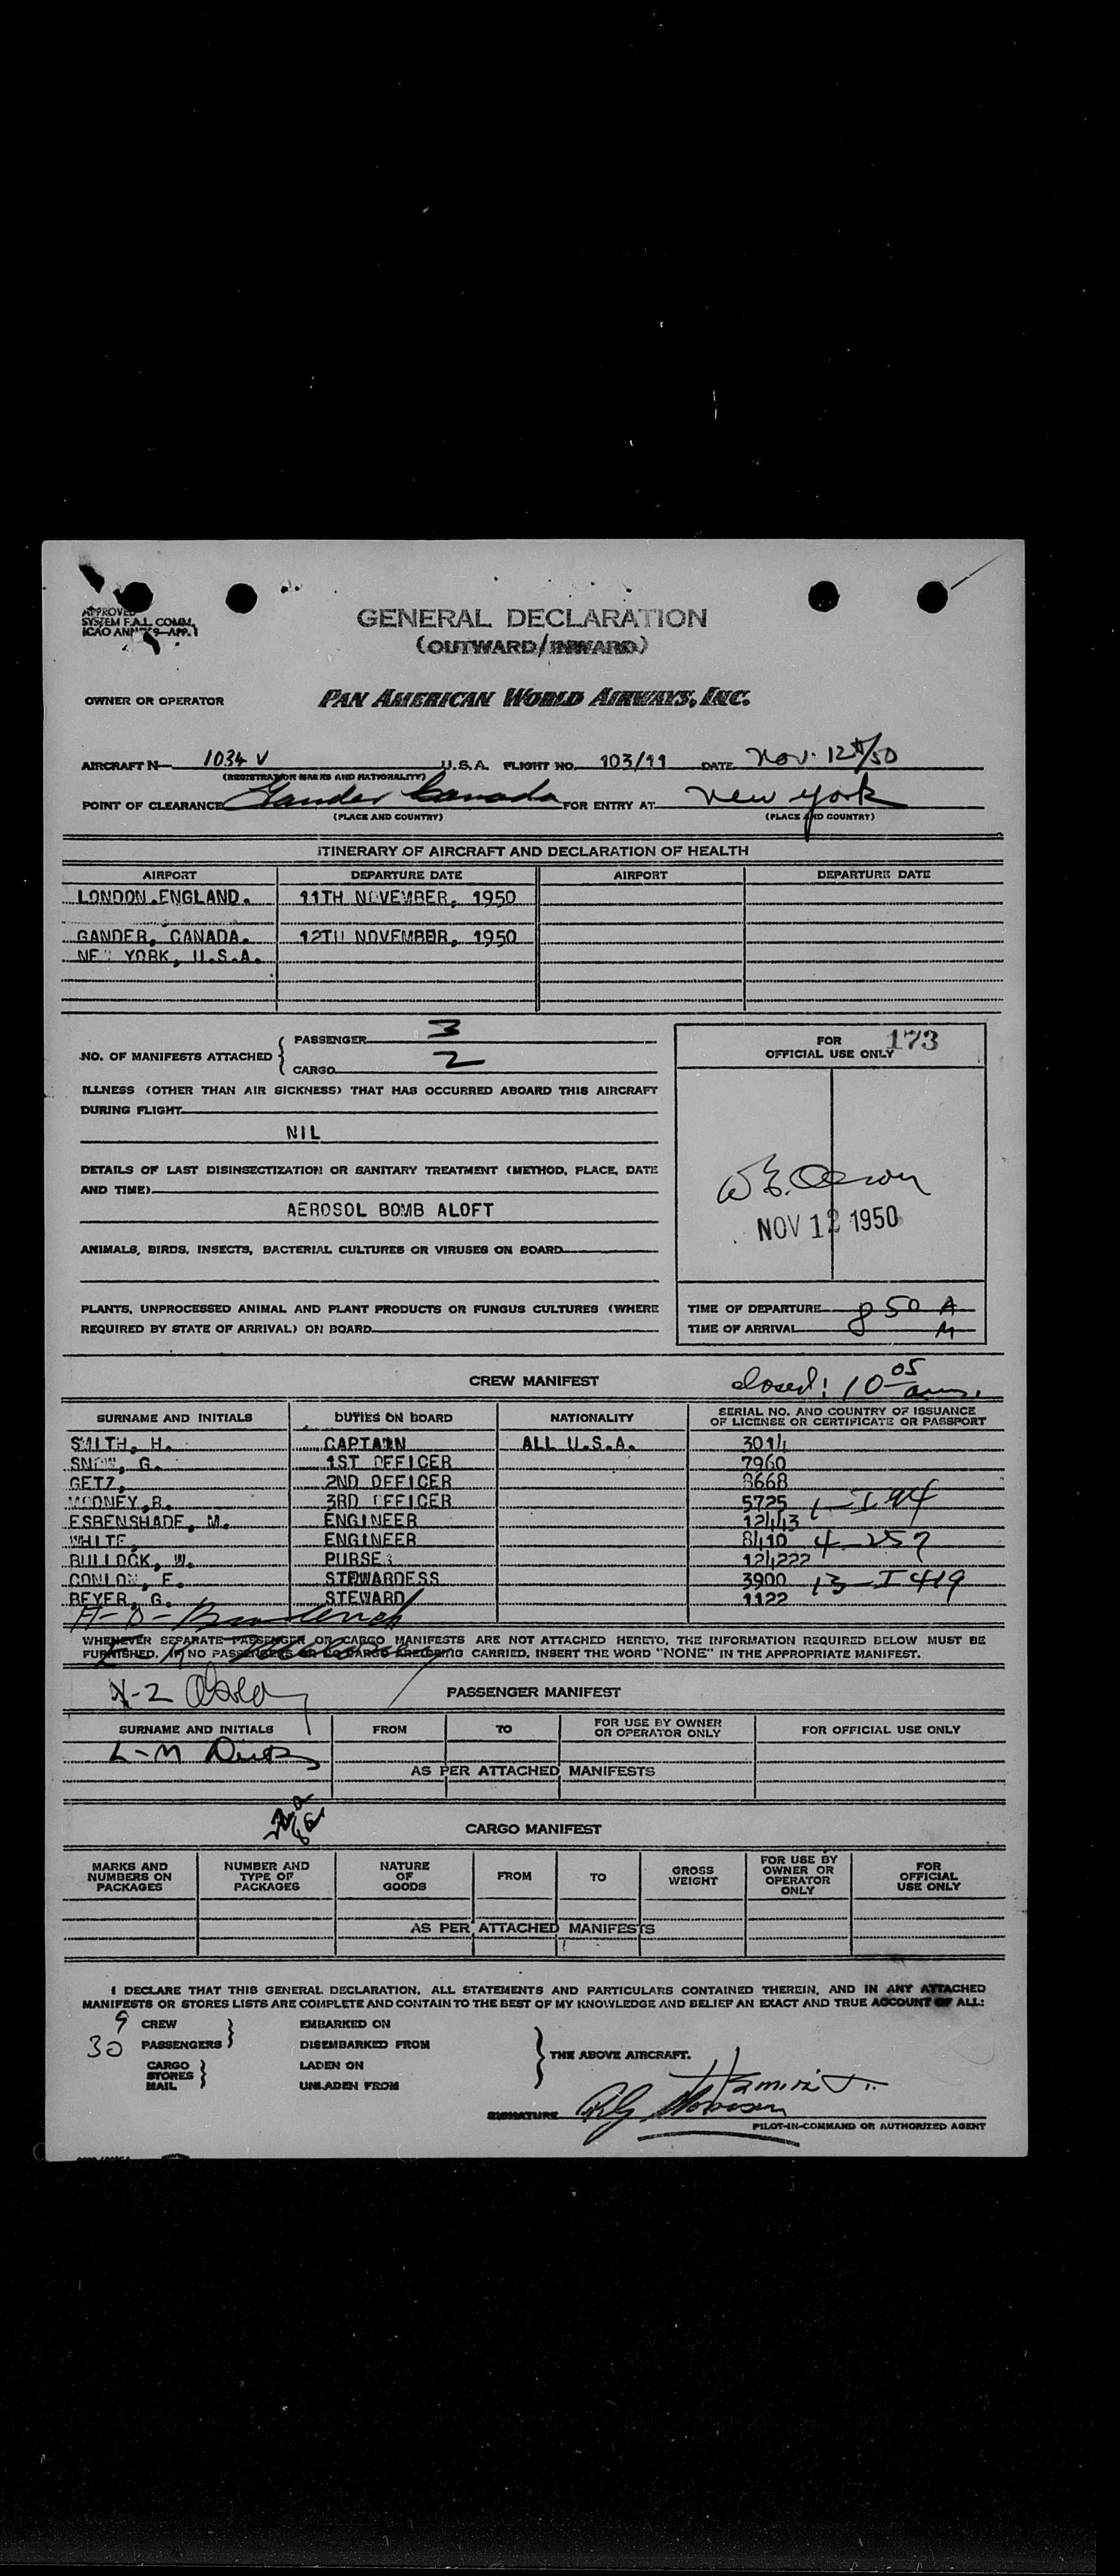 APPROVED
SYSTEM F.A.L. COMM.
ICAO ANNEX 9—APP. 1
GENERAL DECLARATION
(OUTWARD/INWARD)
OWNER OR OPERATOR PAN AMERICAN WORLD AIRWAYS, INC.
AIRCRAFT N— 1034 V U.S.A. FLIGHT NO. 103/11 DATE Nov. 12th/50
(REGISTRATION MARKS AND NATIONALITY)
POINT OF CLEARANCE Gander Canada FOR ENTRY AT New York
(PLACE AND COUNTRY) (PLACE AND COUNTRY)
ITINERARY OF AIRCRAFT AND DECLARATION OF HEALTH
AIRPORT DEPARTURE DATE AIRPORT DEPARTURE DATE
LONDON.ENGLAND. 11TH NOVEMBER, 1950
GANDER, CANADA. 12TH NOVEMBER, 1950
NEW YORK, U.S.A.
NO. OF MANIFESTS ATTACHED
PASSENGER 3
CARGO 2
FOR 173
OFFICIAL USE ONLY
ILLNESS (OTHER THAN AIR SICKNESS) THAT HAS OCCURRED ABOARD THIS AIRCRAFT
DURING FLIGHT
NIL
DETAILS OF LAST DISINSECTIZATION OR SANITARY TREATMENT (METHOD, PLACE, DATE
AND TIME)
AEROSOL BOMB ALOFT
NOV 12 1950
ANIMALS, BIRDS, INSECTS, BACTERIAL CULTURES OR VIRUSES ON BOARD
PLANTS, UNPROCESSED ANIMAL AND PLANT PRODUCTS OR FUNGUS CULTURES (WHERE
REQUIRED BY STATE OF ARRIVAL) ON BOARD
TIME OF DEPARTURE
TIME OF ARRIVAL 8 50 A M
CREW MANIFEST closed: 10 05 am.
SURNAME AND INITIALS DUTIES ON BOARD NATIONALITY SERIAL NO. AND COUNTRY OF ISSUANCE
OF LICENSE OR CERTIFICATE OR PASSPORT
SMITH, H. CAPTAIN ALL U.S.A. 3014
SNOW, G. 1ST OFFICER 7960
GETZ, 2ND OFFICER 8668
MOONEY,R. 3RD OFFICER 5725 1—I 94
ESBENSHADE, M. ENGINEER 12443
WHITE, ENGINEER 8410 4—257
BULLOCK, W. PURSER 124222
CONLON, E. STEWARDESS 3900 13—I 419
BEYER, G. STEWARD 1122
WHENEVER SEPARATE PASSENGER OR CARGO MANIFESTS ARE NOT ATTACHED HERETO, THE INFORMATION REQUIRED BELOW MUST BE
FURNISHED. IF NO PASSENGERS OR NO CARGO ARE BEING CARRIED, INSERT THE WORD "NONE" IN THE APPROPRIATE MANIFEST.
PASSENGER MANIFEST
SURNAME AND INITIALS FROM TO FOR USE BY OWNER
OR OPERATOR ONLY FOR OFFICIAL USE ONLY
AS PER ATTACHED MANIFESTS
CARGO MANIFEST
MARKS AND
NUMBERS ON
PACKAGES NUMBER AND
TYPE OF
PACKAGES NATURE
OF
GOODS FROM TO GROSS
WEIGHT FOR USE BY
OWNER OR
OPERATOR
ONLY FOR
OFFICIAL
USE ONLY
AS PER ATTACHED MANIFESTS
I DECLARE THAT THIS GENERAL DECLARATION, ALL STATEMENTS AND PARTICULARS CONTAINED THEREIN, AND IN ANY ATTACHED
MANIFESTS OR STORES LISTS ARE COMPLETE AND CONTAIN TO THE BEST OF MY KNOWLEDGE AND BELIEF AN EXACT AND TRUE ACCOUNT OF ALL:
9 CREW EMBARKED ON
30 PASSENGERS DISEMBARKED FROM
THE ABOVE AIRCRAFT.
CARGO LADEN ON
STORES
MAIL UNLADEN FROM
SIGNATURE
PILOT-IN-COMMAND OR AUTHORIZED AGENT